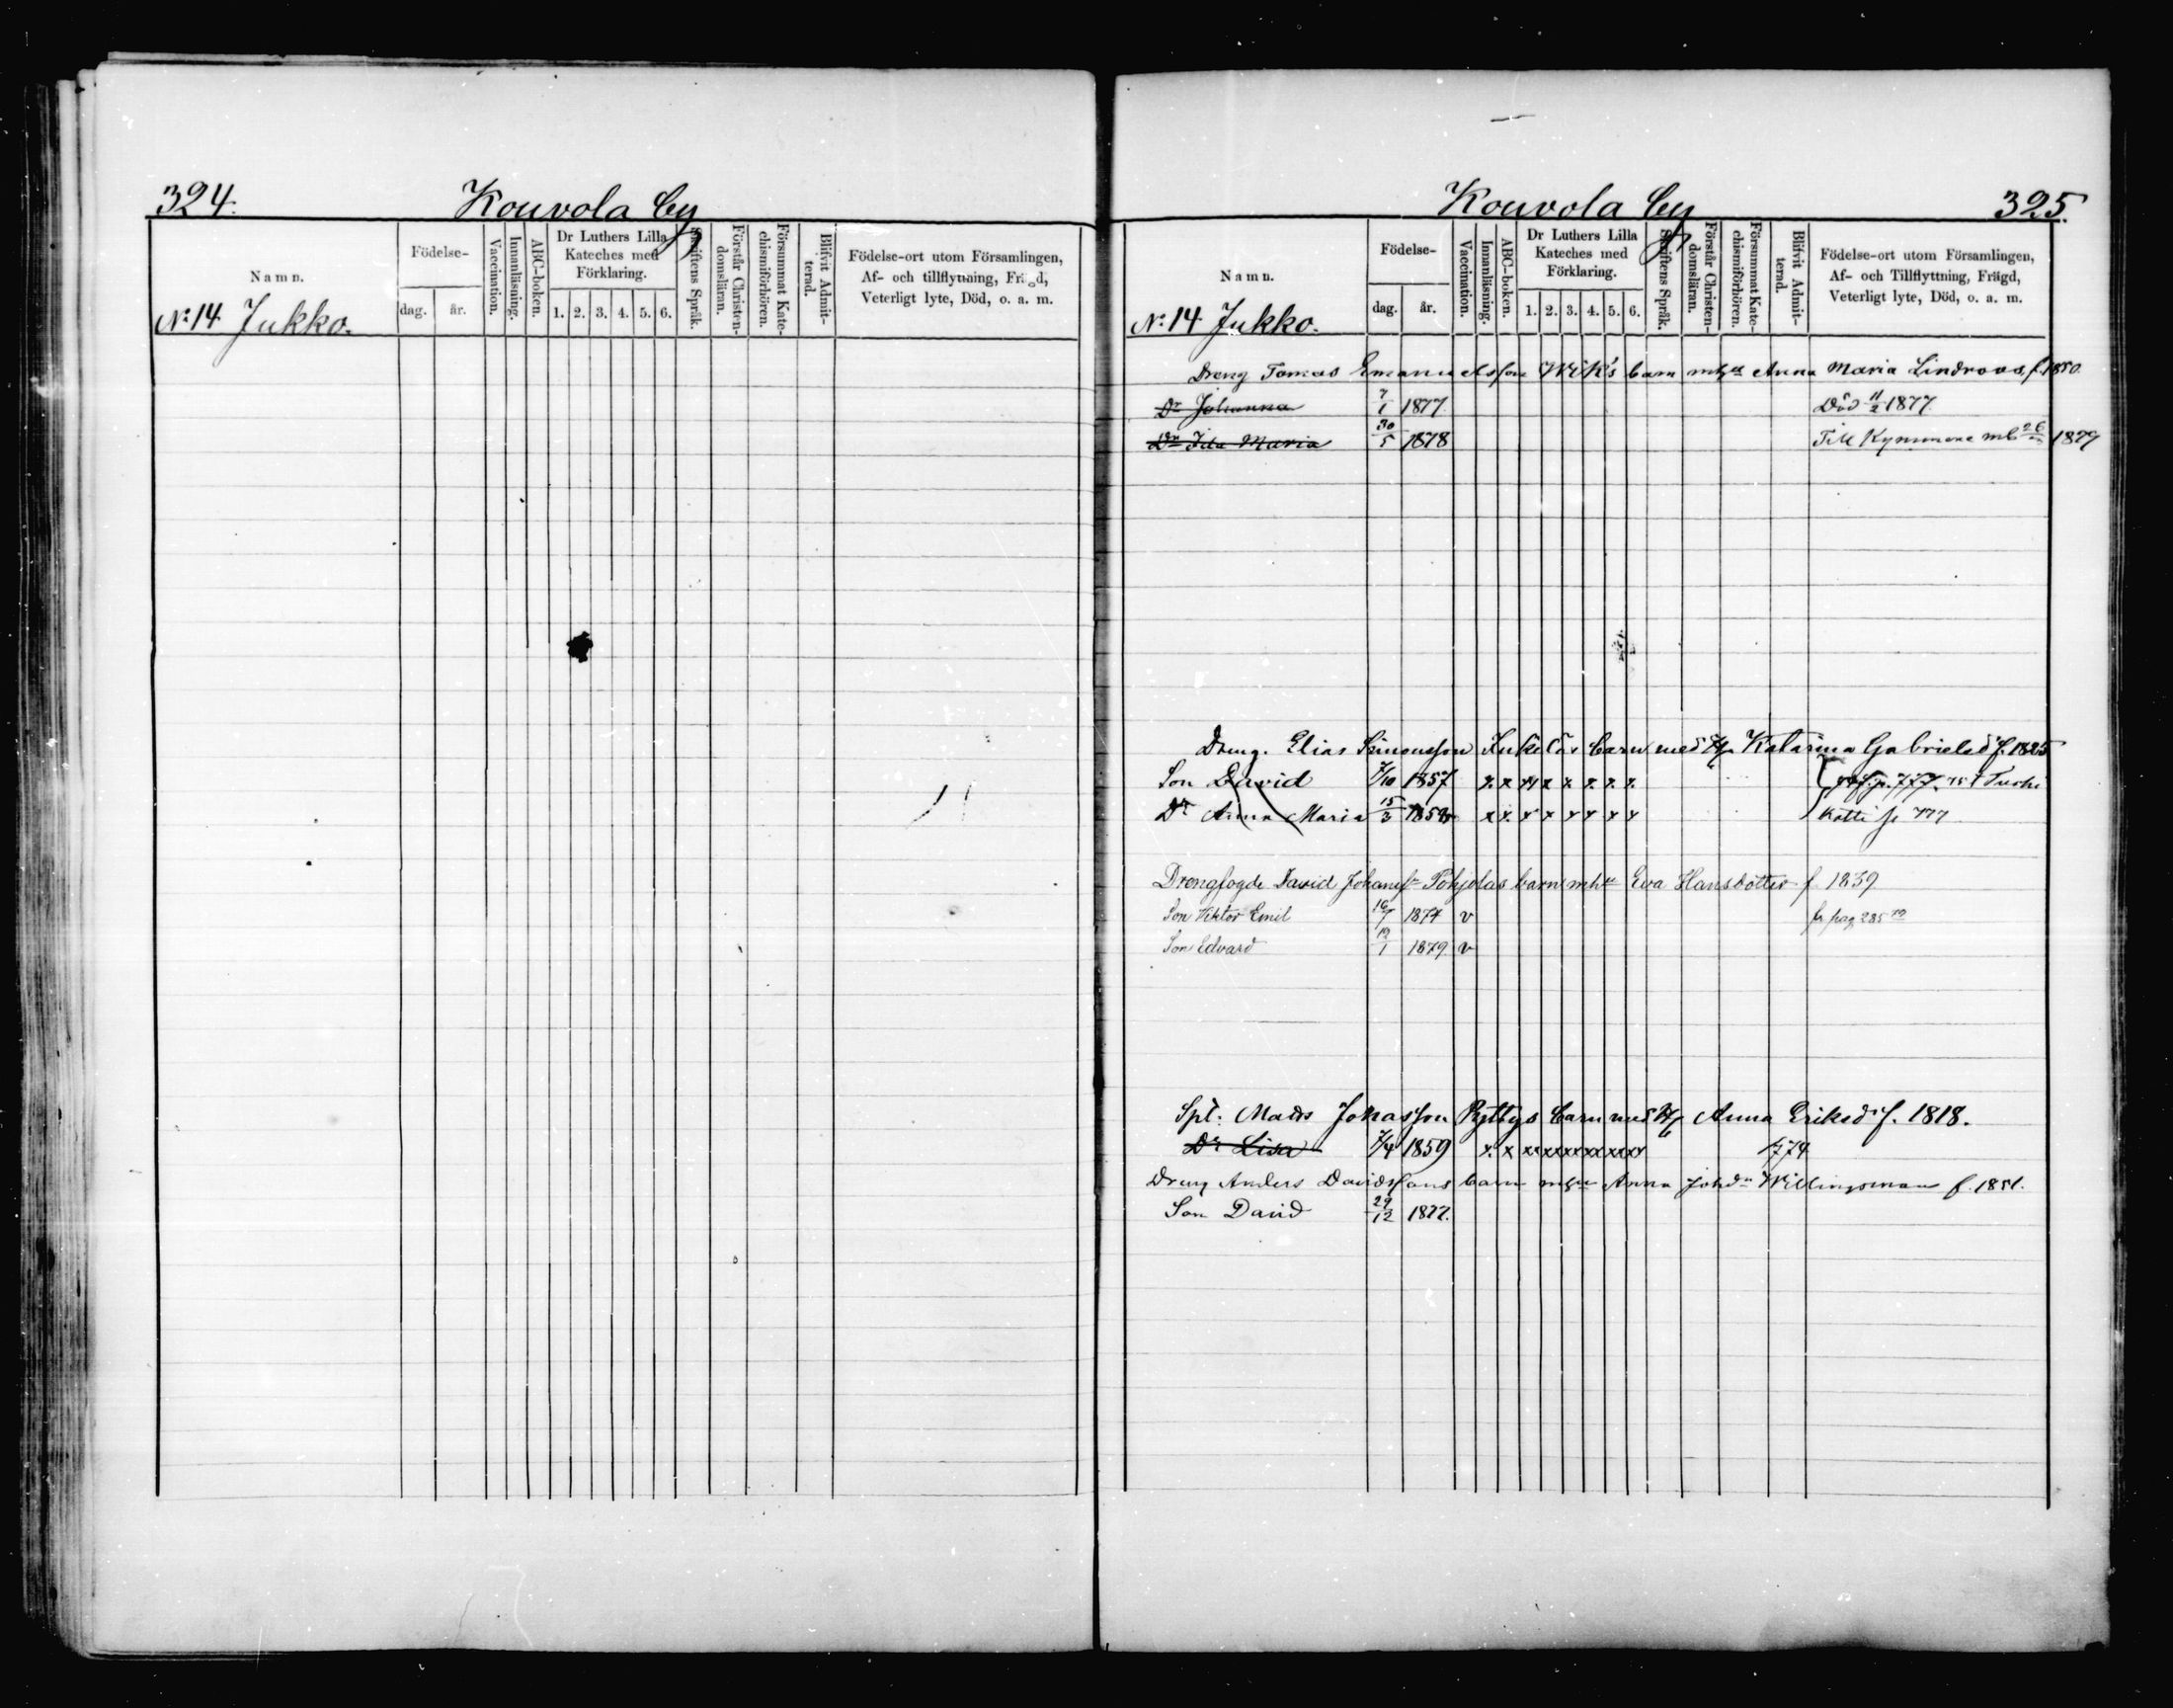 324.
Kouvola by
Namn.
Födelse-
dag. år.
Vaccination.
Innanläsning.
ABC-boken.
Dr Luthers Lilla
Kateches med
Förklaring.
1. 2. 3. 4. 5. 6.
Skriftens Språk.
Förstår Christen-
domsläran.
Försummat Kate-
chismiförhören.
Blifvit Admit-
terad.
Födelse-ort utom Församlingen,
Af- och tillflyttning,
Veterligt lyte, Död, o. a. m.
No 14 Jukko.
Kouvola by
325.
Namn.
Födelse-
dag. år.
Vaccination.
Innanläsning.
ABC-boken.
Dr Luthers Lilla
Kateches med
Förklaring.
1. 2. 3. 4. 5. 6.
Skriftens Språk.
Förstår Christen-
domsläran.
Försummat Kate-
chismiförhören.
Blifvit Admit-
terad.
Födelse-ort utom Församlingen,
Af- och Tillflyttning, Frägd,
Veterligt lyte, Död, o. a. m.
No 14 Jukko.
Dreng Tomas Emanuelsson Wik's barn mhu Anna Maria Lindroos f. 1850.
Dr Johanna 7/1 1877 Död 11/2 1877.
Dr Ida Maria 30/5 1878 Till Kymmene mb 1879
Dreng. Elias Simonsson barn med H Katarina Gabrielsd f. 1825
Son David 7/10 1857 x x x x x x x x p. 777.
Dr Anna Maria 15/3 x x x x x x x x 777
Drengfogde David Johansn Pohjolas barn mhu Eva Hansdotter f 1839
Son Viktor Emil 16/7 1877 v fr pag 285
Son Edvard 19/1 1879 v
Spt. Mats Johasson Pyttys barn med H Anna Eriksd f. 1818.
Dr Lisa 7/4 1859 x x xxxxxxxxxxxx 774
Dreng Anders Davidssons barn mhu Anna Johdr Willingsman f. 1851.
Son David 29/12 1877.